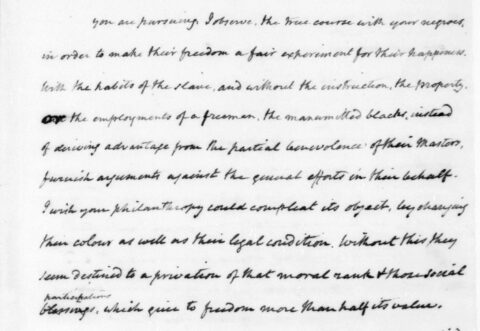 you are pursuing, I observe, the true course with your negroes,
in order to make their freedom a fair experiment for their happiness.
With the habits of the slave, and without the instruction, the property,
or the employments of a freeman, the manumitted blacks, instead
of deriving advantage from the partial benevolence of their Masters,
furnish arguments against the general efforts in their behalf.
I wish your philanthropy could compleat its object, by changing
their colour as well as their legal condition. Without this they
seem destined to a privation of that moral rank & those social
participations
blessings, which give to freedom more than half its value.